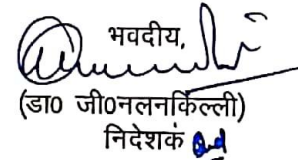 भवदीय,
(डा0 जी0नलनकिल्ली)
निदेशक